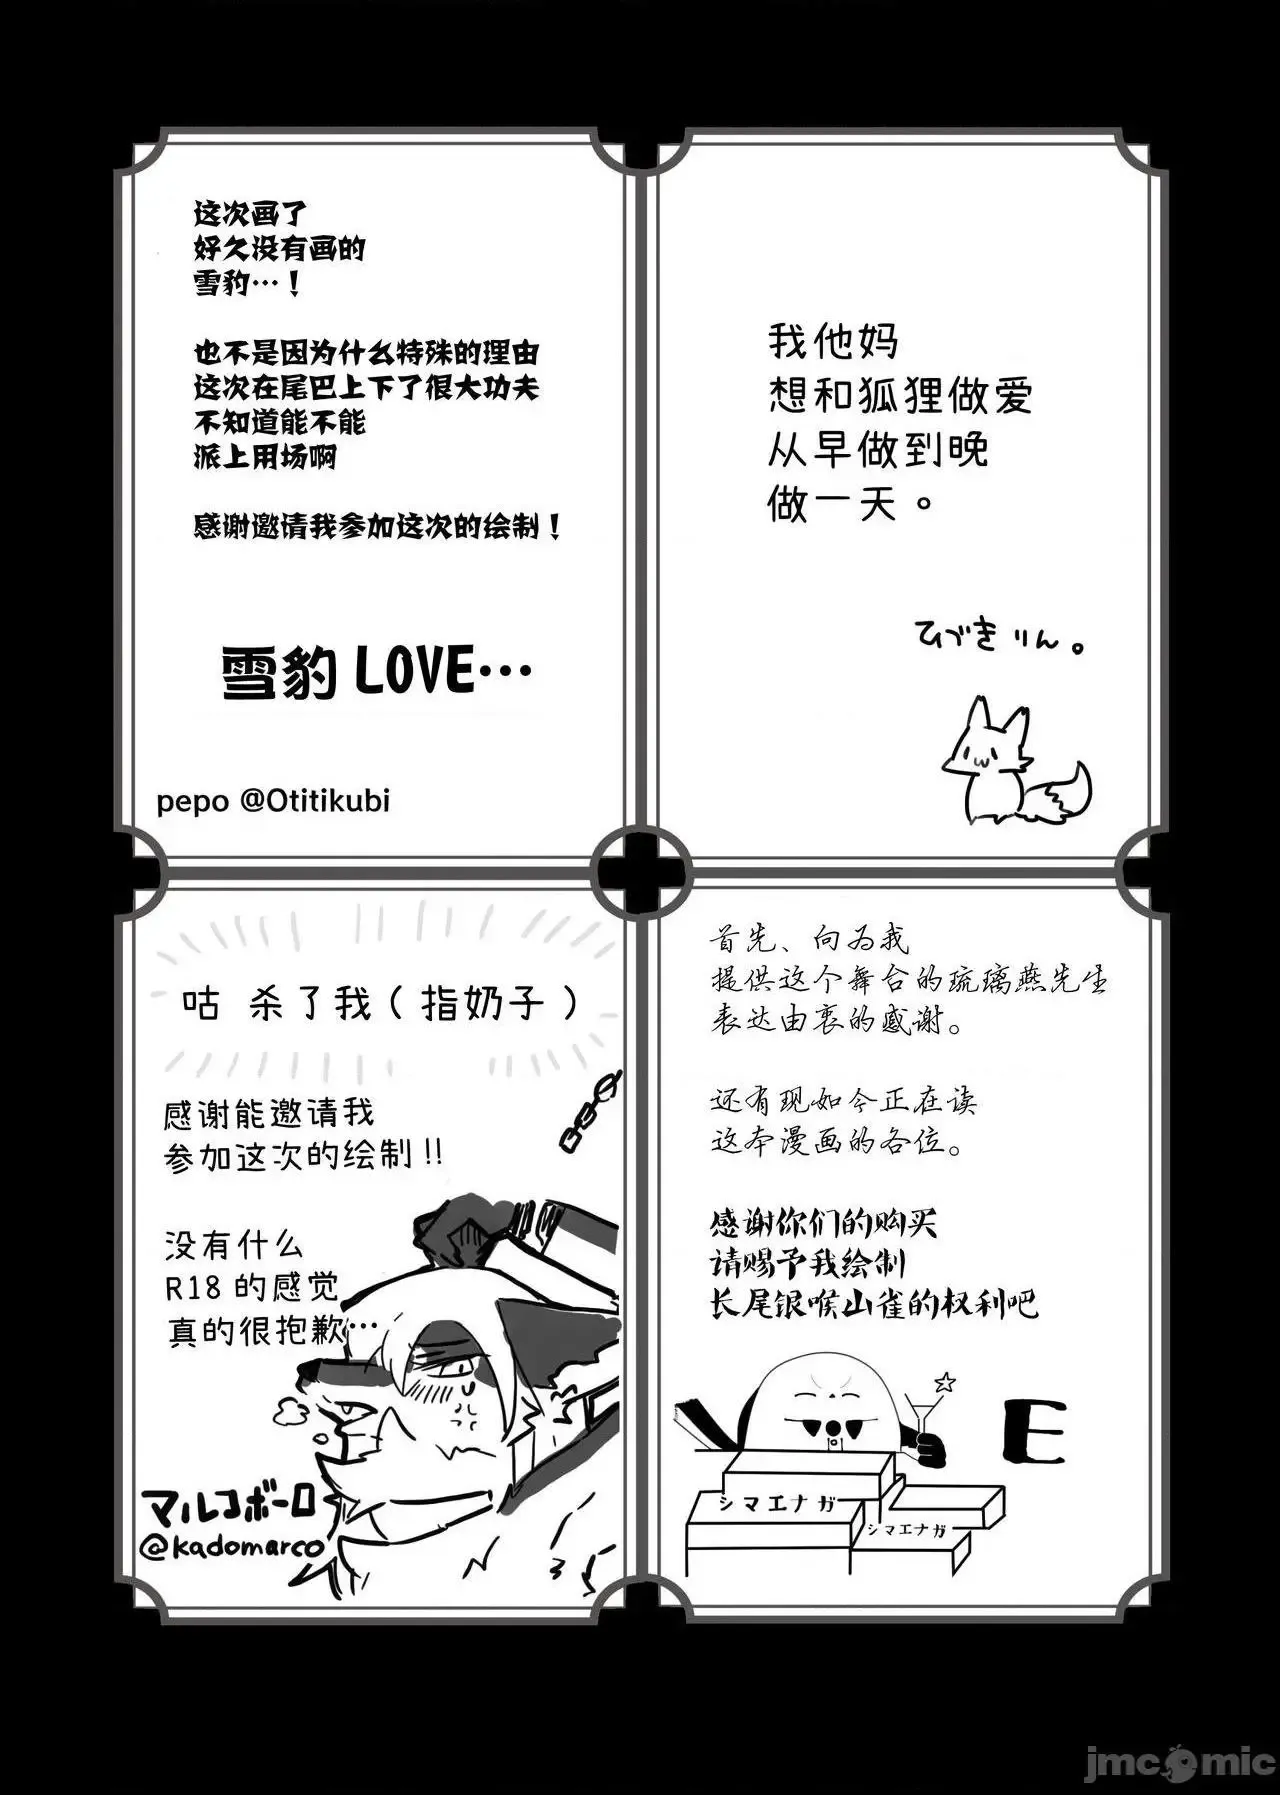 这次画了
好久没有画的
雪豹…！
也不是因为什么特殊的理由
这次在尾巴上下了很大功夫
不知道能不能
派上用场啊
感谢邀请我参加这次的绘制！
雪豹 LOVE…
pepo @Otitikubi
我他妈
想和狐狸做爱
从早做到晚
做一天。
ひづきりん。
咕 杀了我（指奶子）
感谢能邀请我
参加这次的绘制!!
没有什么
R18的感觉
真的很抱歉…
マルコボーロ
@kadomarco
首先、向为我
提供这个舞台的琉璃燕先生
表达由衷的感谢。
还有现如今正在读
这本漫画的各位。
感谢你们的购买
请赐予我绘制
长尾银喉山雀的权利吧
E
シマエナガ
シマエナガ
jmcomic